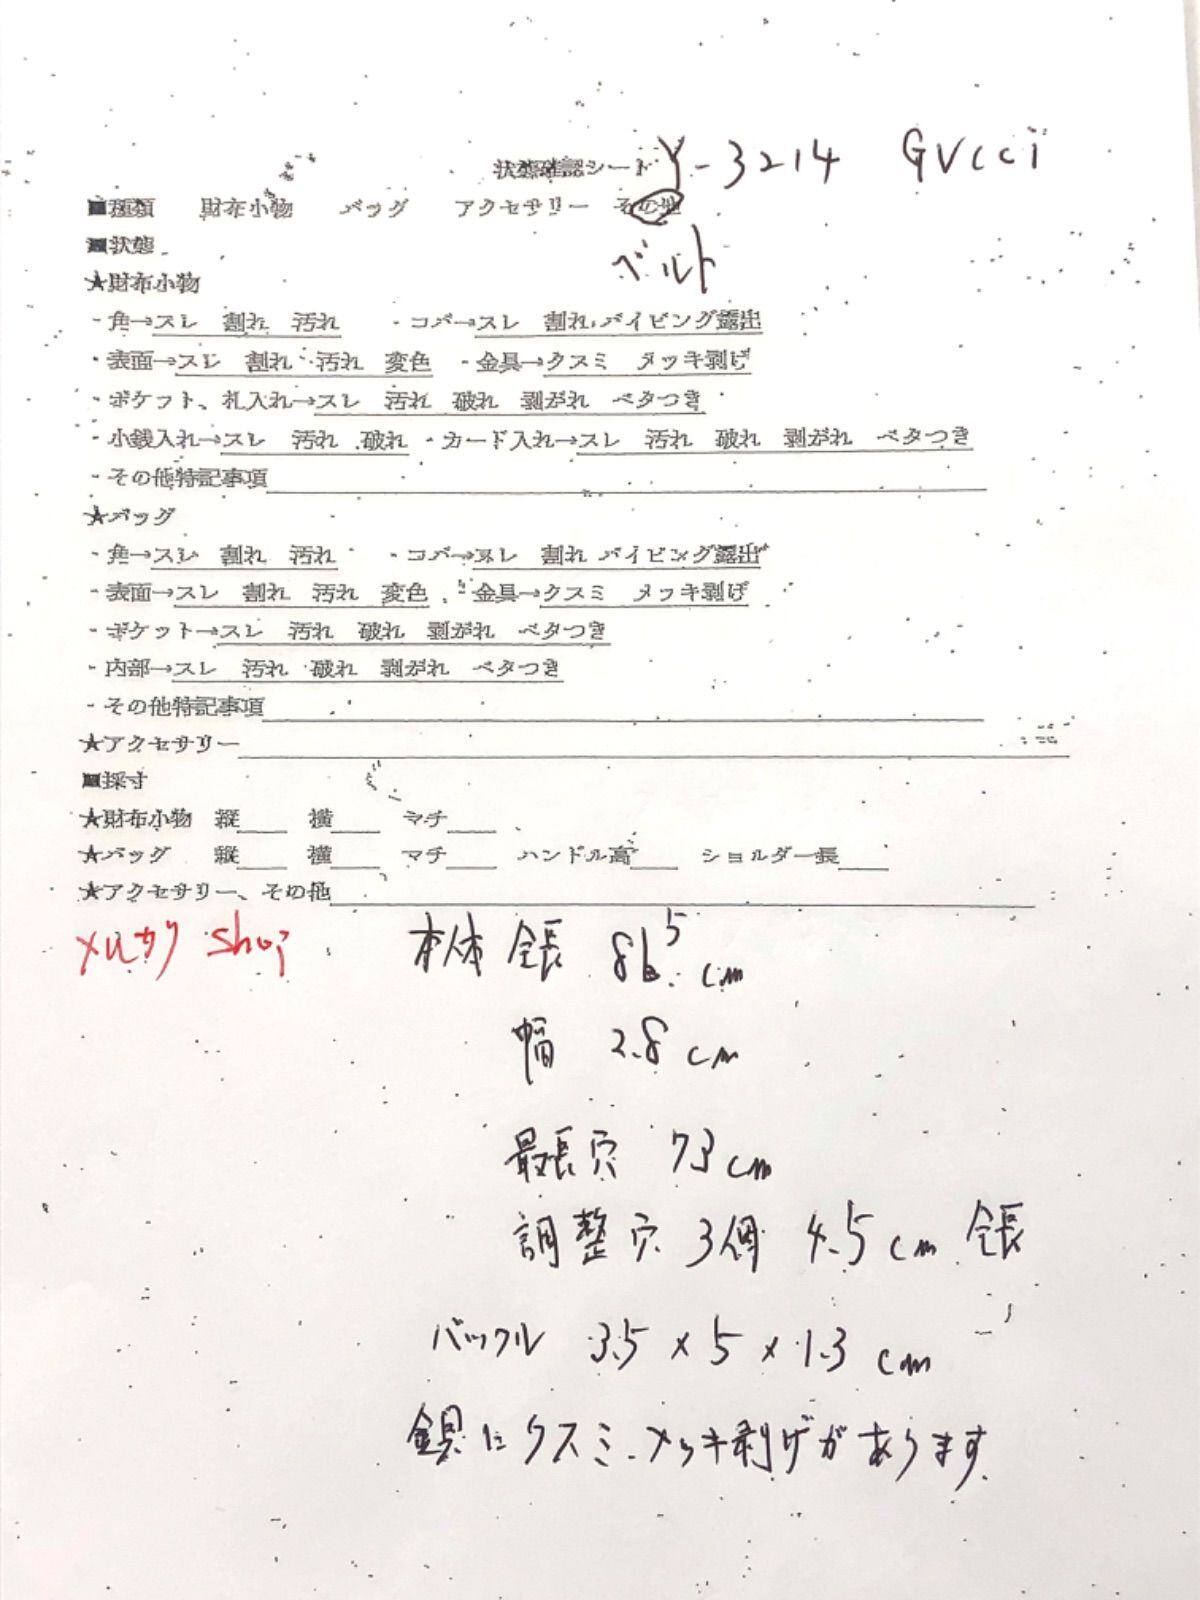 状態確認シート Y-3214 GUCCI
■種類 財布小物 バッグ アクセサリー その他
■状態 ベルト
★財布小物
・角→スレ 割れ 汚れ ・コバ→スレ 割れ パイピング露出
・表面→スレ 割れ 汚れ 変色 ・金具→クスミ メッキ剥げ
・ポケット、札入れ→スレ 汚れ 破れ 剥がれ ベタつき
・小銭入れ→スレ 汚れ 破れ ・カード入れ→スレ 汚れ 破れ 剥がれ ベタつき
・その他特記事項
★バッグ
・角→スレ 割れ 汚れ ・コバ→スレ 割れ パイピング露出
・表面→スレ 割れ 汚れ 変色 ・金具→クスミ メッキ剥げ
・ポケット→スレ 汚れ 破れ 剥がれ ベタつき
・内部→スレ 汚れ 破れ 剥がれ ベタつき
・その他特記事項
★アクセサリー
■採寸
★財布小物 縦 横 マチ
★バッグ 縦 横 マチ ハンドル高 ショルダー長
★アクセサリー、その他
メルカリ shop 本体 全長 86.5 cm
幅 2.8 cm
最長穴 73 cm
調整穴 3個 4.5 cm 全長
バックル 3.5 × 5 × 1.3 cm
金具にクスミ、メッキ剥げがあります